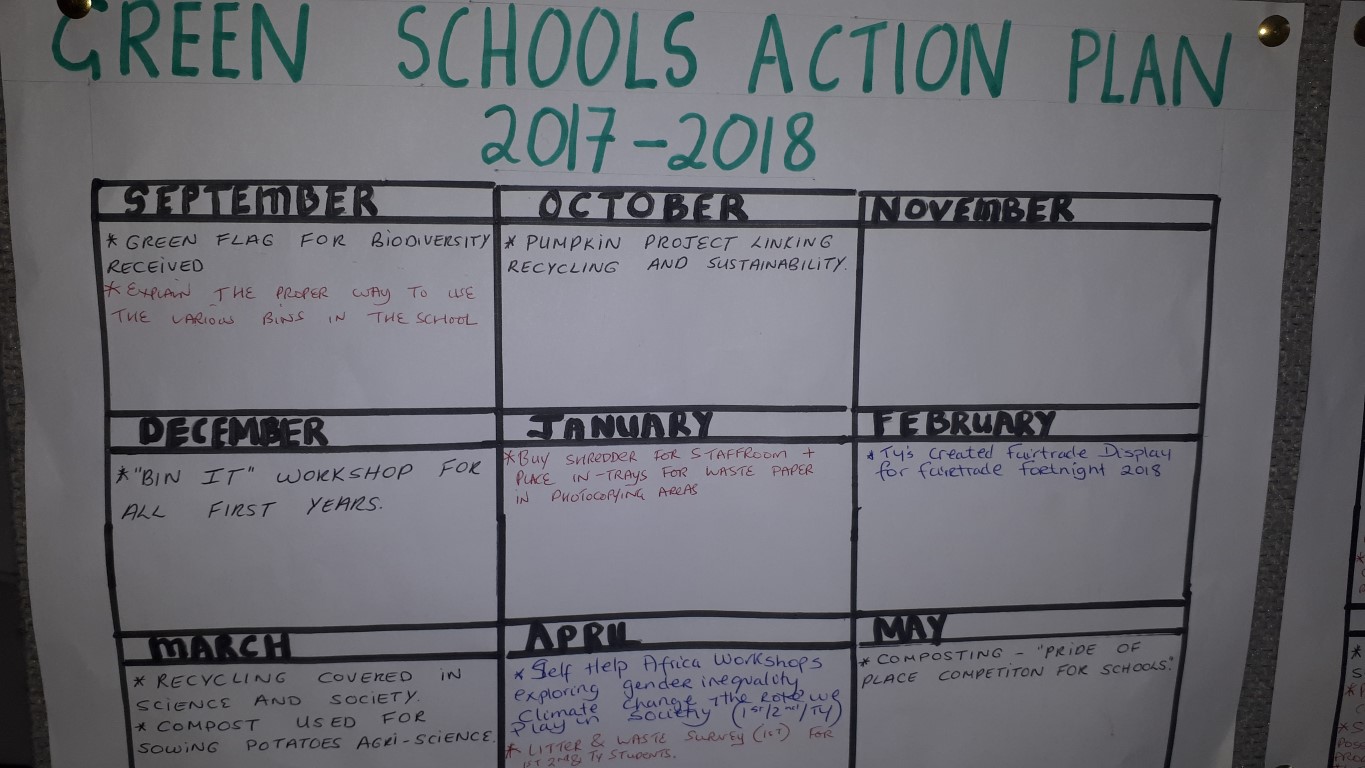 GREEN SCHOOLS ACTION PLAN
2017-2018
SEPTEMBER
* GREEN FLAG FOR BIODIVERSITY
RECEIVED
* EXPLAIN THE PROPER WAY TO USE
THE VARIOUS BINS IN THE SCHOOL
OCTOBER
* PUMPKIN PROJECT LINKING
RECYCLING AND SUSTAINABILITY.
NOVEMBER
DECEMBER
* "BIN IT" WORKSHOP FOR
ALL FIRST YEARS.
JANUARY
* BUY SHREDDER FOR STAFFROOM +
PLACE IN-TRAYS FOR WASTE PAPER
IN PHOTOCOPYING AREAS
FEBRUARY
* TY's Created Fairtrade Display
for fairtrade fortnight 2018
MARCH
* RECYCLING COVERED IN
SCIENCE AND SOCIETY.
* COMPOST USED FOR
SOWING POTATOES AGRI-SCIENCE.
APRIL
* Self Help Africa Workshops
exploring gender inequality
Climate Change + the role we
play in society (1st/2nd/TY)
* LITTER & WASTE SURVEY (1ST) FOR
1ST 2nd & TY STUDENTS.
MAY
* COMPOSTING - "PRIDE OF
PLACE COMPETITON FOR SCHOOLS."